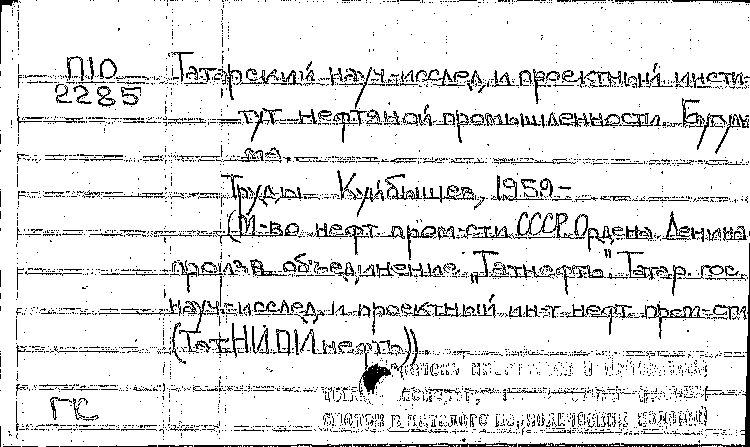 П10
2285
Татарский науч-исслед. и проектный инсти-
тут нефтяной промышленности. Бугуль
ма.
Труды Куйбышев, 1959-
(М-во нефт. пром-сти СССР. Ордена Ленина
произв. объединение „Татнефть". Татар. гос.
науч-исслед. и проектный ин-т нефт. пром-сти
(ТатНИПИнефть))
ГС
в
каталоге периодических изданий